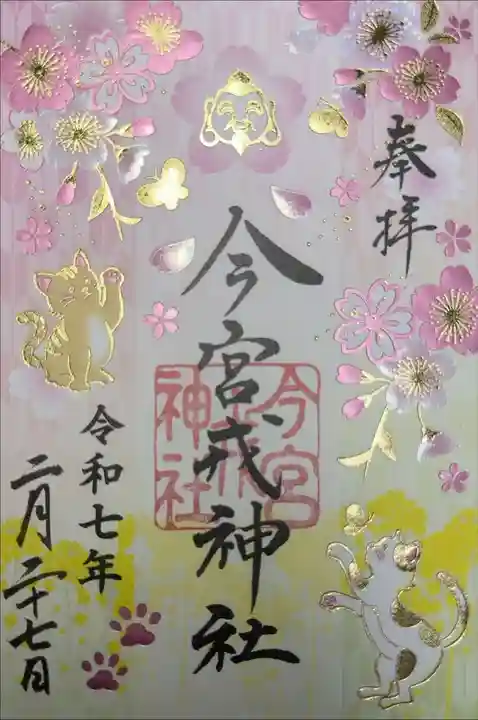 奉拝
今宮戎神社
今宮
戎
神社
令和七年
二月二十七日